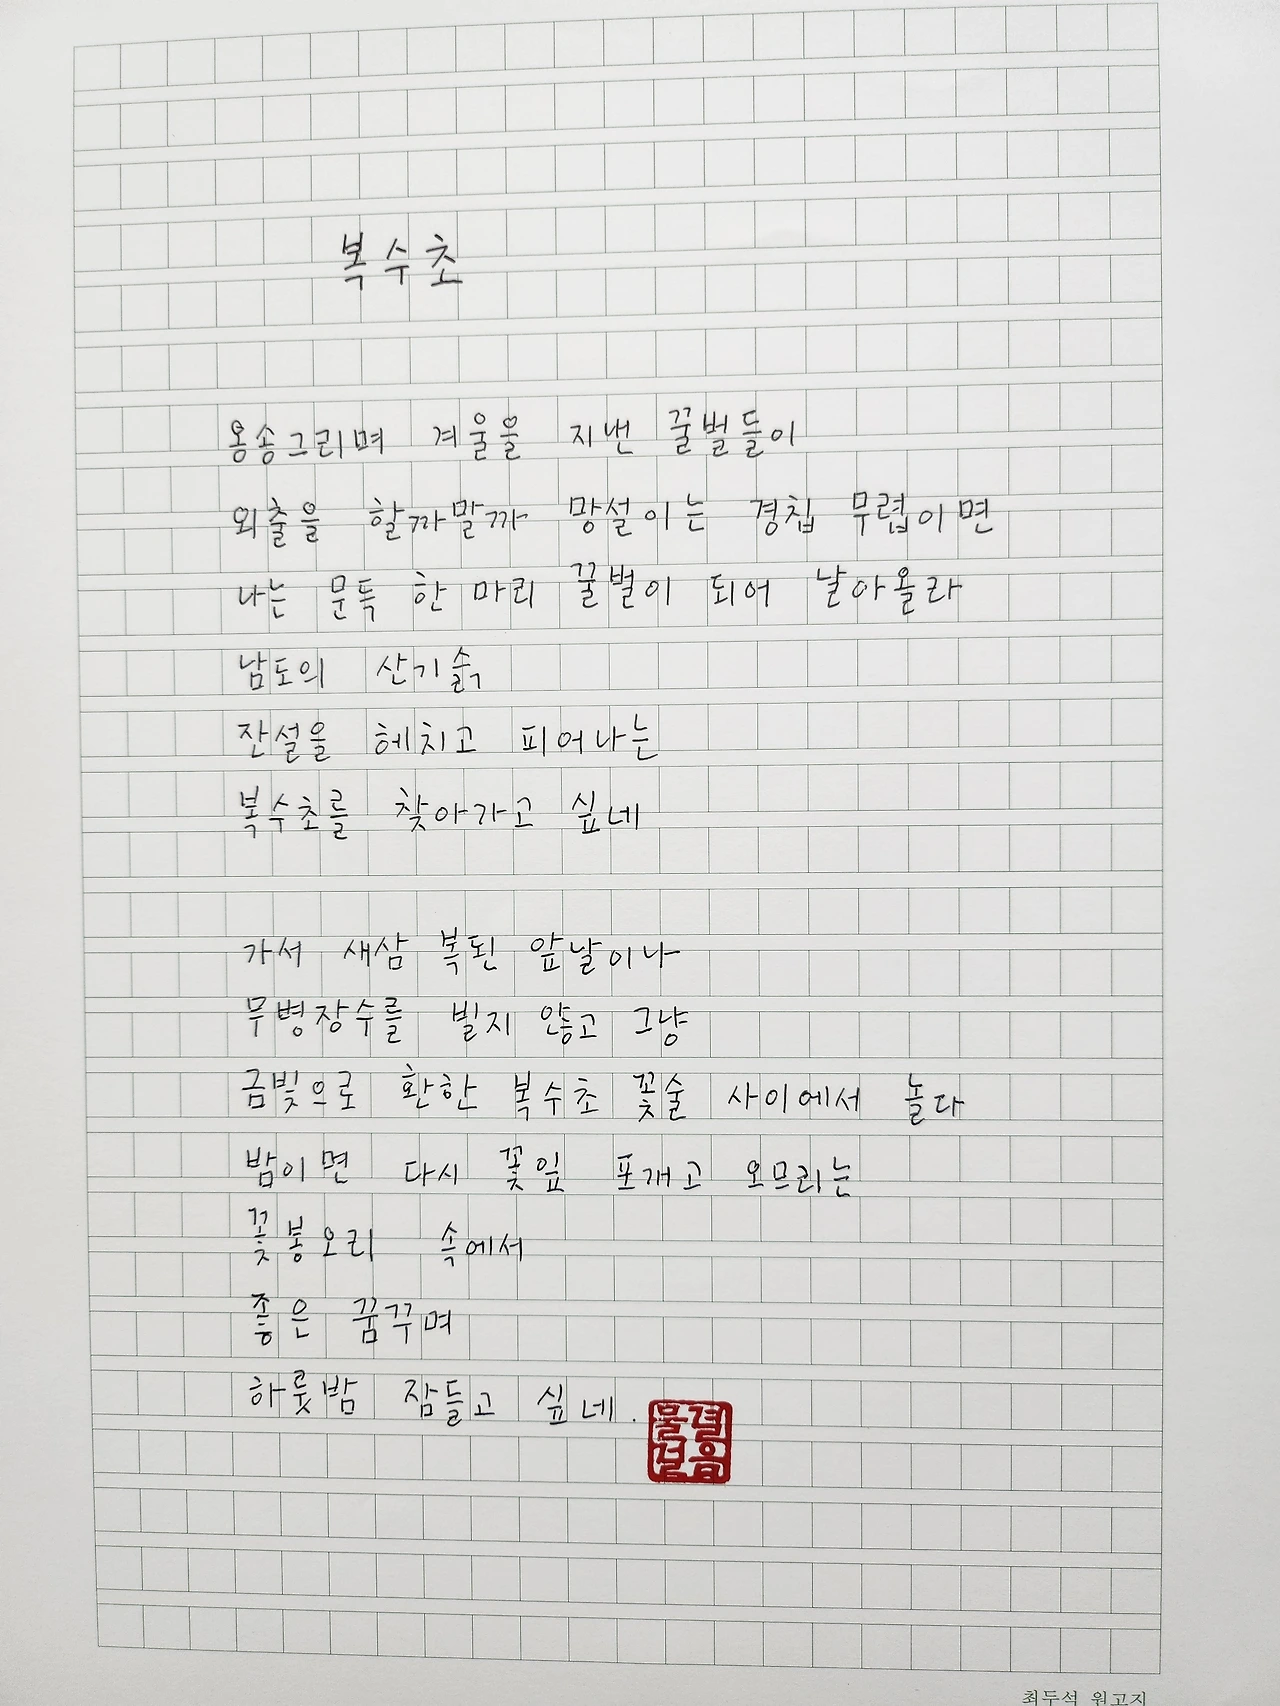 복수초
옹송그리며 겨울을 지낸 꿀벌들이
외출을 할까말까 망설이는 경칩 무렵이면
나는 문득 한 마리 꿀벌이 되어 날아올라
남도의 산기슭
잔설을 헤치고 피어나는
복수초를 찾아가고 싶네
가서 새삼 복된 앞날이나
무병장수를 빌지 않고 그냥
금빛으로 환한 복수초 꽃술 사이에서 놀다
밤이면 다시 꽃잎 포개고 오므리는
꽃봉오리 속에서
좋은 꿈꾸며
하룻밤 잠들고 싶네.
물결
걸음
최두석 원고지